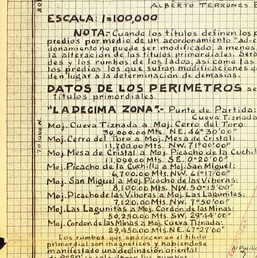 ALBERTO TERRONES B
ESCALA: 1=100,000
NOTA.- Cuando los títulos definen los
predios por medio de un acordonamiento "ad-
donamiento no puede ser modificado, a menos
la alteración de los títulos primordiales. Dere
des y los rumbos de los lados, así como las
los predios los que sufran modificaciones o
den lugar a la determinación de demasías.
DATOS DE LOS PERIMETROS se
títulos primordiales.
"LA DECIMA ZONA".- Punto de Partida:
Cueva Tiznada
Moj. Cueva Tiznada a Moj. Cerro del Toro:
NE. 46°30'00"
Moj. Cerro del Toro a Moj. Mesa de Cristal:
11,700.00 Mts. NW. 71°00'00"
Moj. Mesa de Cristal a Moj. Picacho de la Cuchi
11,000.00 Mts. SE. 0°20'00"
Moj. Picacho de la Cuchilla a Moj. San Miguel:
6,700.00 Mts. NW. 61°17'00"
Moj. San Miguel a Moj. Picacho de las Víboras:
8,100.00 Mts. NW. 50°15'00"
Moj. Picacho de las Víboras a Moj. Las Lagunitas:
7,120.00 Mts. NW. 7°50'00"
Moj. Las Lagunitas a Moj. Cordón de las Minas:
59,250.00 Mts. SW. 29°44'00"
Moj. Cordón de las Minas a Moj. Cueva Tiznada:
29,450.00 Mts. 67°27'00"
Los rumbos que aparecen en el título
primordial son magnéticos y habiéndose
manifestado una declinación oriental